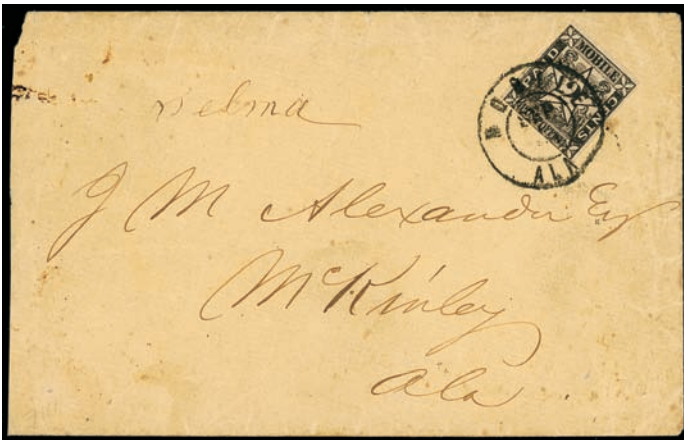 MOBILE
PAID
2
CENTS
ALA
Selma
J M Alexander Esq
McKinley
Ala